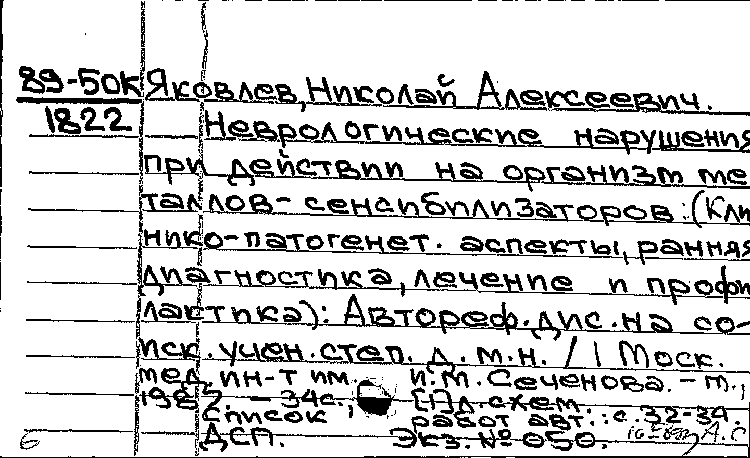 89-50к Яковлев, Николай Алексеевич.
1822 Неврологические нарушения
при действии на организм ме
таллов-сенсибилизаторов: (Кли
нико-патогенет. аспекты, ранняя
диагностика, лечение и профи
лактика): Автореф. дис. на со-
иск. учен. степ. д. м. н. / I Моск.
мед. ин-т им. И. М. Сеченова. - М.,
34с.;
Список работ авт.: с. 32-34.
6 ДСП. Экз. № 050.